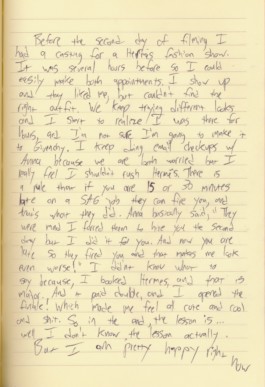 Before the second day of filming I
had a casting for a Hermes fashion show.
It was several hours before so I could
easily make both appointments. I show up
and they liked me, but couldn't find the
right outfit. We keep trying different looks
and I start to realize I was there for
hours, and I'm not sure I'm going to make it
to Givenchy. I keep doing email checkups w/
Anna because we are both worried but I
really feel I shouldn't rush Hermes. There is
a rule that if you are 15 or 30 minutes
late on a SAG job they can fire you, and
thats what they did. Anna basically said, "They
were mad I forced them to have you the second
day but I did it for you. And now you are
late so they fired you and that makes me look
even worse!" I didn't know what to
say because, I booked Hermes and that is
major. And it paid double, and I opened the
finale! which made me feel all cute and cool
and shit. So in the end the lesson is...
well I don't know the lesson actually.
But I am pretty happy right
now